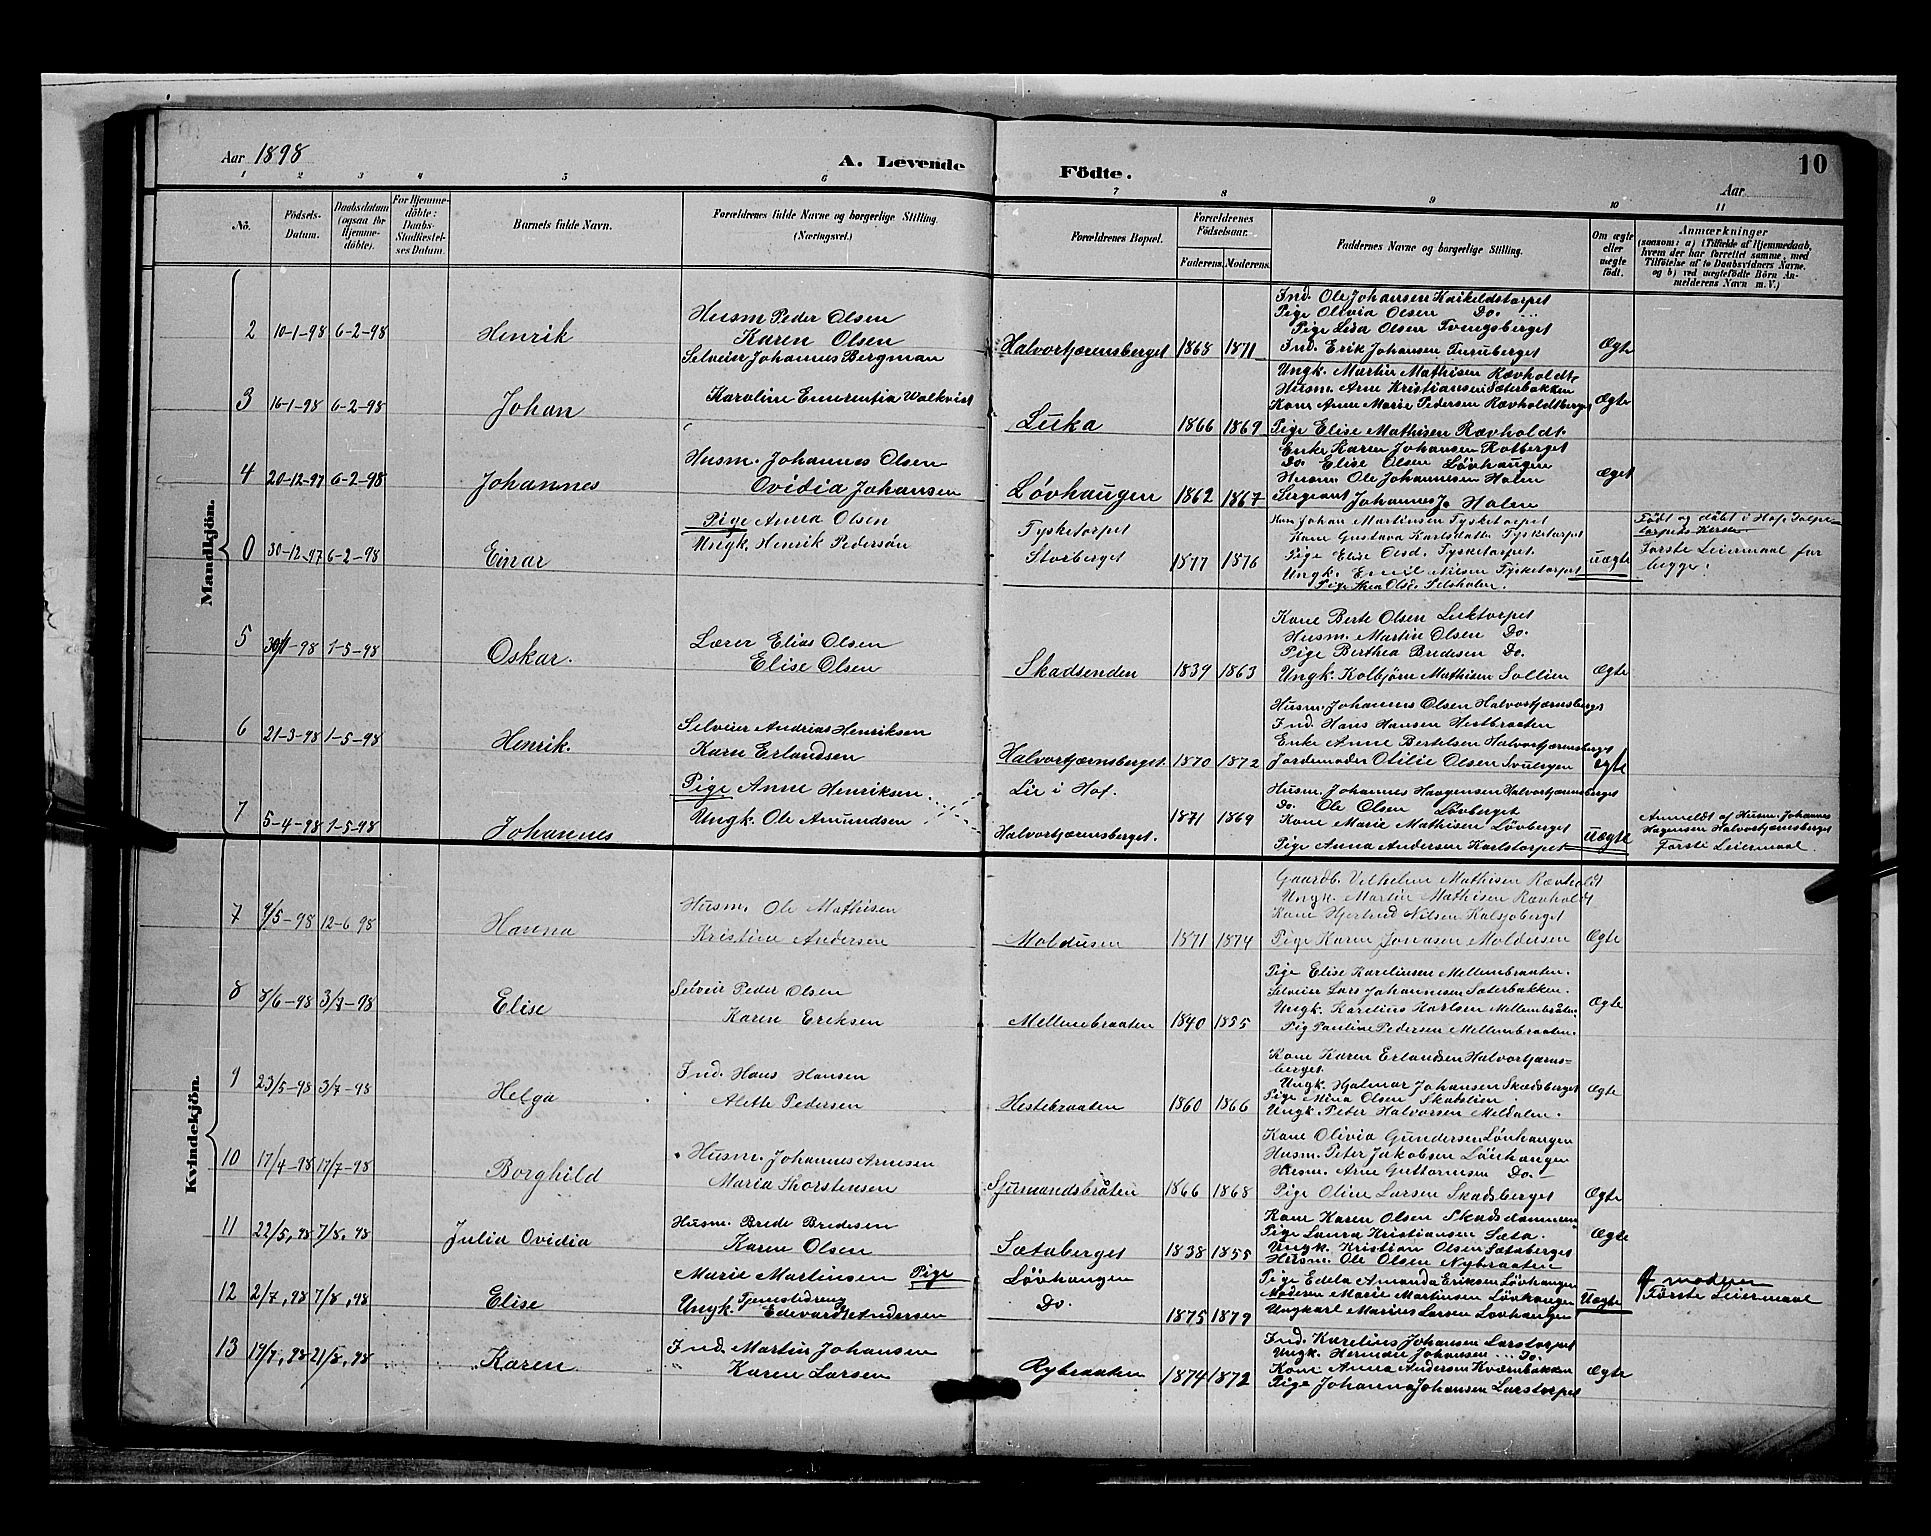 Aar 1898
A. Levende
Födte.
Aar
10
1 2 3 4 5 6 7 8 9 10 11
Nö.
Födsels-Datum.
Daabsdatum (ogsaa for Hjemmedöbte).
For Hjemmedöbte: Daabs-Stadfæstelses Datum.
Barnets fulde Navn.
Forældrenes fulde Navne og borgerlige Stilling. (Næringsvei.)
Forældrenes Bopæl.
Forældrenes Födselsaar.
Faderens. Moderens.
Faddernes Navne og borgerlige Stilling.
Om ægte eller uægte födt.
Anmærkninger
(saasom: a) i Tilfælde af Hjemmedaab, hvem der har forrettet samme, med Tilföielse af to Daabsvidners Navne, og b) ved uægtefödte Börn Anmelderens Navn m.V.)
Mandkjön.
2 10-1-98 6-2-98 Henrik
Husm Peder Olsen
Karen Olsen
Halvortjærnsberget 1868 1871
Ind. Ole Johansen Kaikeldstorpet
Pige Olivia Olsen Do.
Pige Lisa Olsen Tvengsberget
Ind. Erik Johansen Furuberget
Ægte
3 16-1-98 6-2-98 Johan
Selveier Johannes Bergman
Karoline Emerentia Walkvist
Luka 1866 1869
Ungk. Martin Mathisen Rævholdt
Husm. Arne Kristiansen Sæterbakken
Kone Anne Marie Pedersen Rævholdtsberget
Pige Elise Mathisen Rævholdt.
Ægte
4 20-12-97 6-2-98 Johannes
Husm. Johannes Olsen
Ovidia Johansen
Lövhaugen 1862 1867
Enke Karen Johansen Rotberget
Do. Elise Olsen Lövhaugen
Husm. Ole Johannesen Holen
Sergeant Johannes J. Holen
Æget
0 30-12-97 6-2-98 Einar
Pige Anna Olsen
Ungk. Henrik Pedersön
Tysketorpet
Storberget 1877 1876
Husm Johan Martinsen Tysketorpet
Kone Gustava Karlsdatter Tysketorpet
Pige Elise Olsd. Tysketorpet.
Ungk. Emil Nilsen Tysketorpet
Pige Thea Olsd. Selsholen.
uægte
Födt og döbt i Hof,
Förste Leiermaal for
begge.
5 30/1-98 1-5-98 Oskar.
Lærer Elias Olsen
Elise Olsen
Skadsenden 1839 1863
Kone Berte Olsen Lektorpet
Husm. Martin Olsen Do.
Pige Berthea Bredesen Do.
Ungk. Kolbjörn Mathisen Sollien
Ægte
6 21-3-98 1-5-98 Henrik.
Selveier Andreas Henriksen
Karen Erlandsen
Halvortjærnsberget. 1870 1872
Husm. Johannes Olsen Halvortjærnsberget
Ind. Hans Hansen Hestbraaten
Enke Anne Bertelsen Halvortjærnsberget
Jordemoder Otilie Olsen Svullryen
Ægte
7 5-4-98 1-5-98 Johannes
Pige Anne Henriksen.
Ungk. Ole Amundsen
Lie i Hof.
Halvortjærnsberget. 1871 1869
Husm. Johannes Haagensen Halvortjærnsberget
Do. Ole Olsen Lövberget
Kone Marie Mathisen Lövberget
Pige Anna Andersen Karlstorpet
uægte
Anmeldt af Husm. Johannes
Hagensen Halvortjærnsberget
Förste Leiermaal.
Kvindekjön.
7 9/5-98 12-6 98 Hanna
Husm. Ole Mathisen
Kristina Andersen
Moldusen 1871 1874
Gaardb. Vilhelm Mathisen Rævholdt
Ungk. Martin Mathisen Rævholdt
Kone Gjertrud Nilsen Kalsjoberget
Pige Karen Jonasen Moldusen
Ægte
8 8/6-98 3/7-98 Elise
Selveier Peder Olsen
Karen Eriksen
Mellembraaten 1840 1855
Pige Elise Karelinsen Mellembraaten.
Selveier Lars Johannesen Sæterbakken.
Ungk. Karelius Karlsen Mellembråten
Pig Pauline Pedersen Mellembraaten.
Ægte
9 23/5-98 3/7-98 Helga
Ind. Hans Hansen
Alette Pedersen
Hestebraaten 1860 1866
Kone Karen Erlandsen Halvortjærnsberget.
Ungk. Hjalmar Johansen Skadsberget
Pige Mina Olsen Skatslien.
Ungk. Peter Halvorsen Meldalen.
Ægte
10 17/4-98 17/7-98 Borghild
Husm. Johannes Arnesen
Maria Thorstensen
Gjermandsbråten 1866 1868
Kone Olivia Gundersen Lövhaugen
Husm. Peter Jakobsen Lövhaugen
Husm. Arne Guttormsen Do.
Pige Oline Larsen Skadsberget
Ægte
11 22/5,98 7/8,98 Julia Ovidia
Husm. Brede Bredesen
Karen Olsen
Sætaberget 1838 1855
Kone Karen Olsen Skadsdammen
Pige Laura Kristiansen Sæta.
Ungk. Kristian Olsen Sætaberget
Husm. Ole Olsen Nybraaten
Ægte
12 2/7,98 7/8,98 Elise
Marie Martinsen Pige
Ungk. Tjenestedreng Edevard Andersen
Lövhaugen
Do. 1875 1879
Pige Edela Amanda Eriksen Lövhaugen
Moderen Marie Martinsen Lövhaugen
Ungkarl Marius Larsen Lövhaugen
Uægte
Af moderen
Förste Leiermaal
13 19/7,98 21/8,98 Karen
Ind. Martin Johansen
Karen Larsen
Rybraaten 1874 1872
Ind. Karelius Johansen Larstorpet
Ungk. Herman Johansen Do.
Kone Anna Andersen Kværnbakken
Pige Johanna Johansen Larstorpet
Ægte